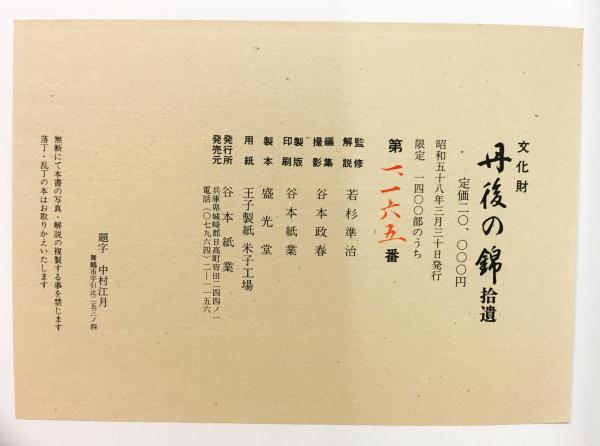 文化財
丹後の錦 拾遺
定価二〇、〇〇〇円
昭和五十八年三月三十日発行
限定 一四〇〇部のうち
第一、一六五番
監修 解説 若杉準治
編集 撮影 谷本政春
製版 印刷 谷本紙業
製本 盛光堂
用紙 王子製紙 米子工場
発行所 発売元 谷本紙業
兵庫県城崎郡日高町宵田二四四ノ一
電話(〇七九六四)二—一一五六
題字 中村江月
舞鶴市字引土二五三ノ四
無断にて本書の写真・解説の複製する事を禁じます
落丁・乱丁の本はお取りかえいたします